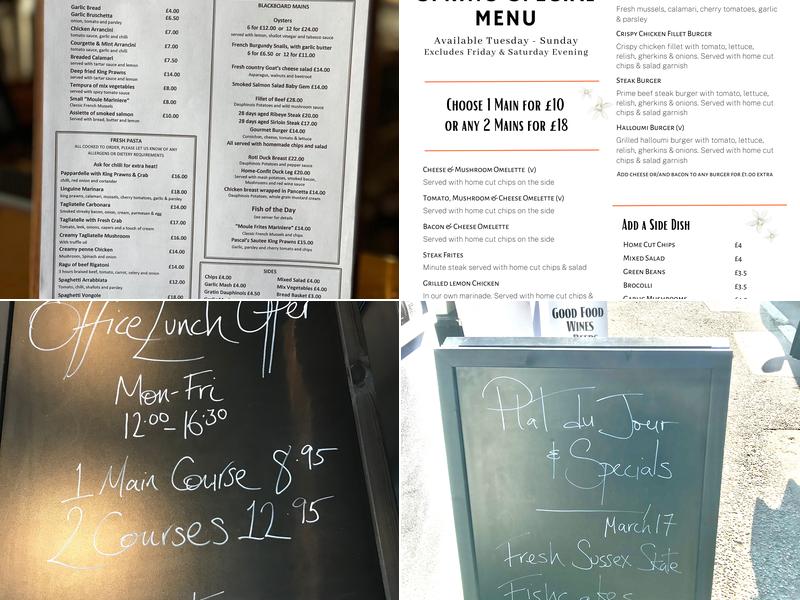 Garlic Bread £4.00
Garlic Bruschetta £6.50
onion, tomato and parsley
Chicken Arrancini £7.00
Tomato sauce, garlic and chilli
Courgette & Mint Arrancini £7.00
tomato sauce, garlic and chilli
Breaded Calamari £7.50
served with tartar sauce and lemon
Deep fried King Prawns £14.00
served with tartar sauce and lemon
Tempura of mix vegetables £8.00
served with spicy tomato sauce
Small "Moule Mariniere" £8.00
Classic French Mussels
Assiette of smoked salmon £10.00
Served with bread, butter and lemon
FRESH PASTA
ALL COOKED TO ORDER, PLEASE LET US KNOW OF ANY
ALLERGENS OR DIETERY REQUIREMENTS
Ask for chilli for extra heat!
Pappardelle with King Prawns & Crab £16.00
chilli, red onion and coriander
Linguine Marinara £18.00
king prawns, calamari, mussels, cherry tomatoes, garlic & parsley
Tagliatelle Carbonara £14.00
Smoked streaky bacon, onion, cream, parmesan & egg
Tagliatelle with Fresh Crab £17.00
Tomato, leek, onions, capers and a touch of cream
Creamy Tagliatelle Mushroom £16.00
With truffle oil
Creamy penne Chicken £14.00
Mushroom, Spinach and onion
Ragu of beef Rigatoni £14.00
3 hours braised beef, tomato, carrot, celery and onion
Spaghetti Arrabbiata £12.00
Tomato, chilli, shallots and parsley
Spaghetti Vongole £18.00
BLACKBOARD MAINS
Oysters
6 for £12.00 or 12 for £24.00
served with lemon, shallot vinegar and tabasco sauce
French Burgundy Snails, with garlic butter
6 for £6.50 or 12 for £11.00
Fresh country Goat's cheese salad £14.00
Asparagus, walnuts and beetroot
Smoked Salmon Salad Baby Gem £14.00
Fillet of Beef £28.00
Dauphinois Potatoes and wild mushroom sauce
28 days aged Ribeye Steak £20.00
28 days aged Sirloin Steak £17.00
Gourmet Burger £14.00
Cornichon, cheese, tomato & lettuce
All served with homemade chips and salad
Roti Duck Breast £22.00
Dauphinois Potatoes and pepper sauce
Home-Confit Duck Leg £20.00
Served with mash potatoes, smoked bacon,
Mushrooms and red wine sauce
Chicken breast wrapped in Pancetta £14.00
Dauphinois Potatoes, whole grain mustard cream
Fish of the Day
See server for details
"Moule Frites Mariniere" £14.00
Classic French Mussels and chips
Pascal's Sautee King Prawns £15.00
Garlic, parsley and cherry tomato and chips
SIDES
Chips £4.00 Mixed Salad £4.00
Garlic Mash £4.00 Mix Vegetables £4.00
Gratin Dauphinois £4.50 Bread Basket £3.00
MENU
Available Tuesday - Sunday
Excludes Friday & Saturday Evening
Choose 1 Main for £10
or any 2 Mains for £18
Cheese & Mushroom Omelette (v)
Served with home cut chips on the side
Tomato, Mushroom & Cheese Omelette (v)
Served with home cut chips on the side
Bacon & Cheese Omelette
Served with home cut chips on the side
Steak Frites
Minute steak served with home cut chips & salad
Grilled lemon Chicken
In our own marinade. Served with home cut chips &
Fresh mussels, calamari, cherry tomatoes, garlic
& parsley
Crispy Chicken Fillet Burger
Crispy chicken fillet with tomato, lettuce,
relish, gherkins & onions. Served with home cut
chips & salad garnish
Steak Burger
Prime beef steak burger with tomato, lettuce,
relish, gherkins & onions. Served with home cut
chips & salad garnish
Halloumi Burger (v)
Grilled halloumi burger with tomato, lettuce,
relish, gherkins & onions. Served with home cut
chips & salad garnish
Add cheese or/and bacon to any burger for £1.00 extra
Add a Side Dish
Home Cut Chips £4
Mixed Salad £4
Green Beans £3.5
Brocolli £3.5
Garlic Mushrooms
Office Lunch Offer
Mon-Fri
12.00 - 16.30
1 Main Course 8.95
2 Courses 12.95
Good Food
Wines
Beers
Plat du Jour
& Specials
March 17
Fresh Sussex Skate
Fishcakes